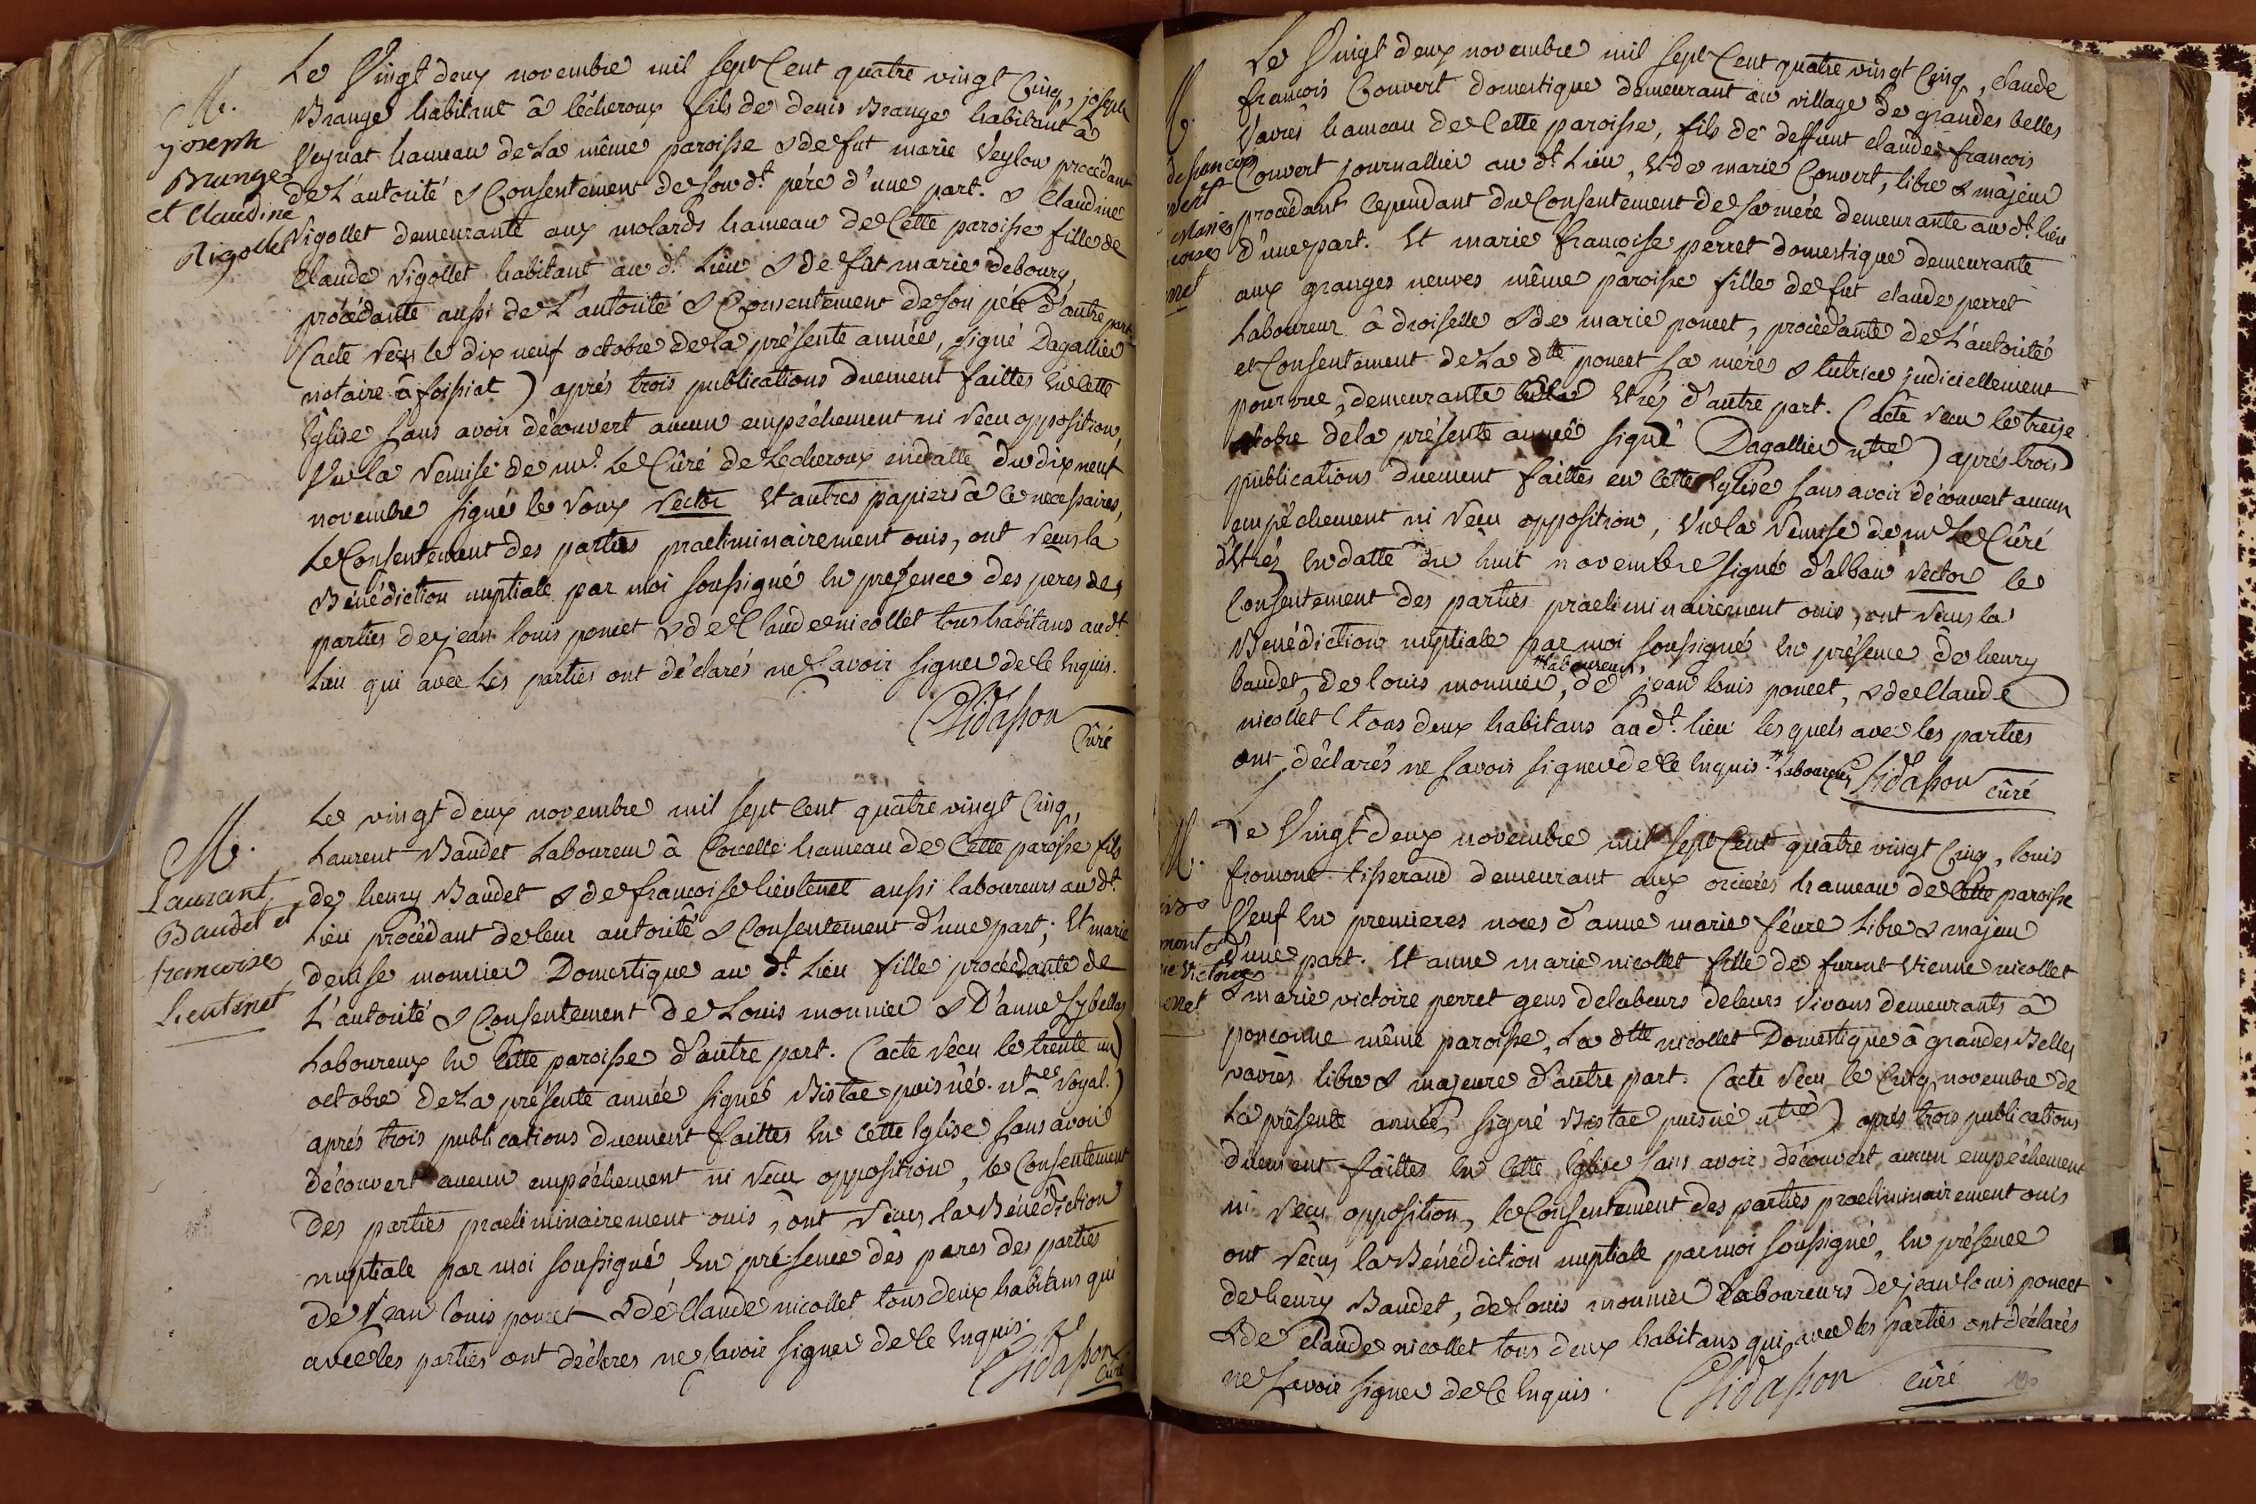 M.
joseph
Brange
et Claudine
Rigollet
Le Vingt deux novembre mil sept Cent quatre vingt Cinq, joseph
Brange habitant â lêcheroux fils de denis Brange habitant â
Veyriat hameau de La même paroisse & de fut marie Veylon procédant
de L'autorité & Consentement de son dt. pére d'une part. & Claudine
Rigollet demeurante aux molards hameau de Cette paroisse fille de
Claude Rigollet habitant au dt. Lieu & de fut marie debourg
procédante aussi de L'autorité & Consentement de son pére d'autre part.
(acte reçu le dix neuf octobre de la présente année, signé Dagallier
notaire â foissiat) aprés trois publications duement faittes En Cette
Eglise sans avoir découvert aucun empéchement ni reçu opposition,
Vu la remise de mr. Le Cûré de Lecheroux en datte du dix neuf
novembre signé le roux rector Et autres papiers â ce necessaires,
Le Consentement des parties praeliminairement ouis, ont reçus la
Bénédiction nuptiale par moi soussigné En presence des peres des
parties de jean louis poncet & de Claude nicollet tous habitans au dt.
Lieu qui avec Les parties ont déclarés ne savoir signer de ce Enquis.
Chidasson
Cûré
M.
Laurant
Baudet et
francoise
Lieutenet
Le vingt deux novembre mil sept Cent quatre vingt Cinq,
Laurent Baudet Laboureur â Corcelle hameau de Cette paroisse fils
de henry Baudet & de francoise lieutenet aussi laboureurs au dt.
Lieu procédant de leur autorité & Consentement d'une part; Et marie
denise monnier Domestique au dt. Lieu fille procédante de
L'autorité & Consentement de Louis monnier & D'anne Sybellas
Laboureux En Cette paroisse d'autre part. (acte reçu le trente un
octobre de La présente année signé Bistac puisnée. ntre. Royal.)
aprés trois publications duement faittes En cette Eglise sans avoir
découvert aucun empéchement ni reçu opposition, le Consentement
des parties praeliminairement ouis, ont reçus la Bénédiction
nuptiale par moi soussigné En présence des peres des parties
de jean louis poncet & de Claude nicollet tous deux habitans qui
avec les parties ont déclares ne savoir signer de ce Enquis.
Chidasson
Curé
M.
Le Vingt deux novembre mil sept Cent quatre vingt Cinq, claude
francois Convert domestique demeurant au village de grandes belles
Vavres hameau de Cette paroisse, fils de deffunt claude francois
Convert journallier au dt. Lieu, & de marie Convert, libre & mâjeur
procédant Cependant du Consentement de sa mére demeurante au dt. lieu
d'une part. Et marie francoise perret domestique demeurante
aux granges neuves même pâroisse fille de fut claude perret
Laboureur â droiselle & de marie poncet, procédante de L'autorité
et Consentement de La dtte poncet sa mére & tutrice judiciellement
pourvue, demeurante Etréz d'autre part. (acte recu le treize
octobre de la présente année signé Dagallier ntre) aprés trois
publications duement faittes en cette Eglise sans avoir découvert aucun
empéchement ni reçu opposition, Vu la remise de mr Le Cûré
d'Etréz En datte du huit novembre signé d'alban rector le
Consentement des parties praeliminairement ouis, ont reçus la
Bénédiction nuptiale par moi soussigné En présence de henry
baudet, de louis monnier, laboureurs, de jean louis poncet, & de Claude
nicollet (tous deux habitans au dt. lieu lesquels avec les parties
ont déclarés ne savoir signer de ce Enquis. Laboureurs Chidasson cûré
M.
Le Vingt deux novembre mil sept Cent quatre vingt Cinq, louis
fromont tisserand demeurant aux orcieres hameau de Cette paroisse
Veuf En premieres noces d'anne marie févre Libre & majeur
d'une part. Et anne marie nicollet fille de furent Etienne nicollet
& marie victoire perret gens de labeurs de leurs vivans demeurants â
ponçonne même paroisse, La dtte nicollet Domestique â grandes Belles
vavres libre & majeure d'autre part. (acte reçu le Cinq novembre de
La présente année, signé Bistac puisné ntre) aprés trois publications
duement faittes En Cette Eglise sans avoir découvert aucun empéchement
ni reçu opposition, le Consentement des parties praeliminairement ouis
ont reçus la Bénédiction nuptiale par moi soussigné, En présence
de henry Baudet, de louis monnier Laboureurs de jean louis poncet
& de claude nicollet tous deux habitans qui avec les parties ont déclarés
ne savoir signer de ce Enquis. Chidasson cûré